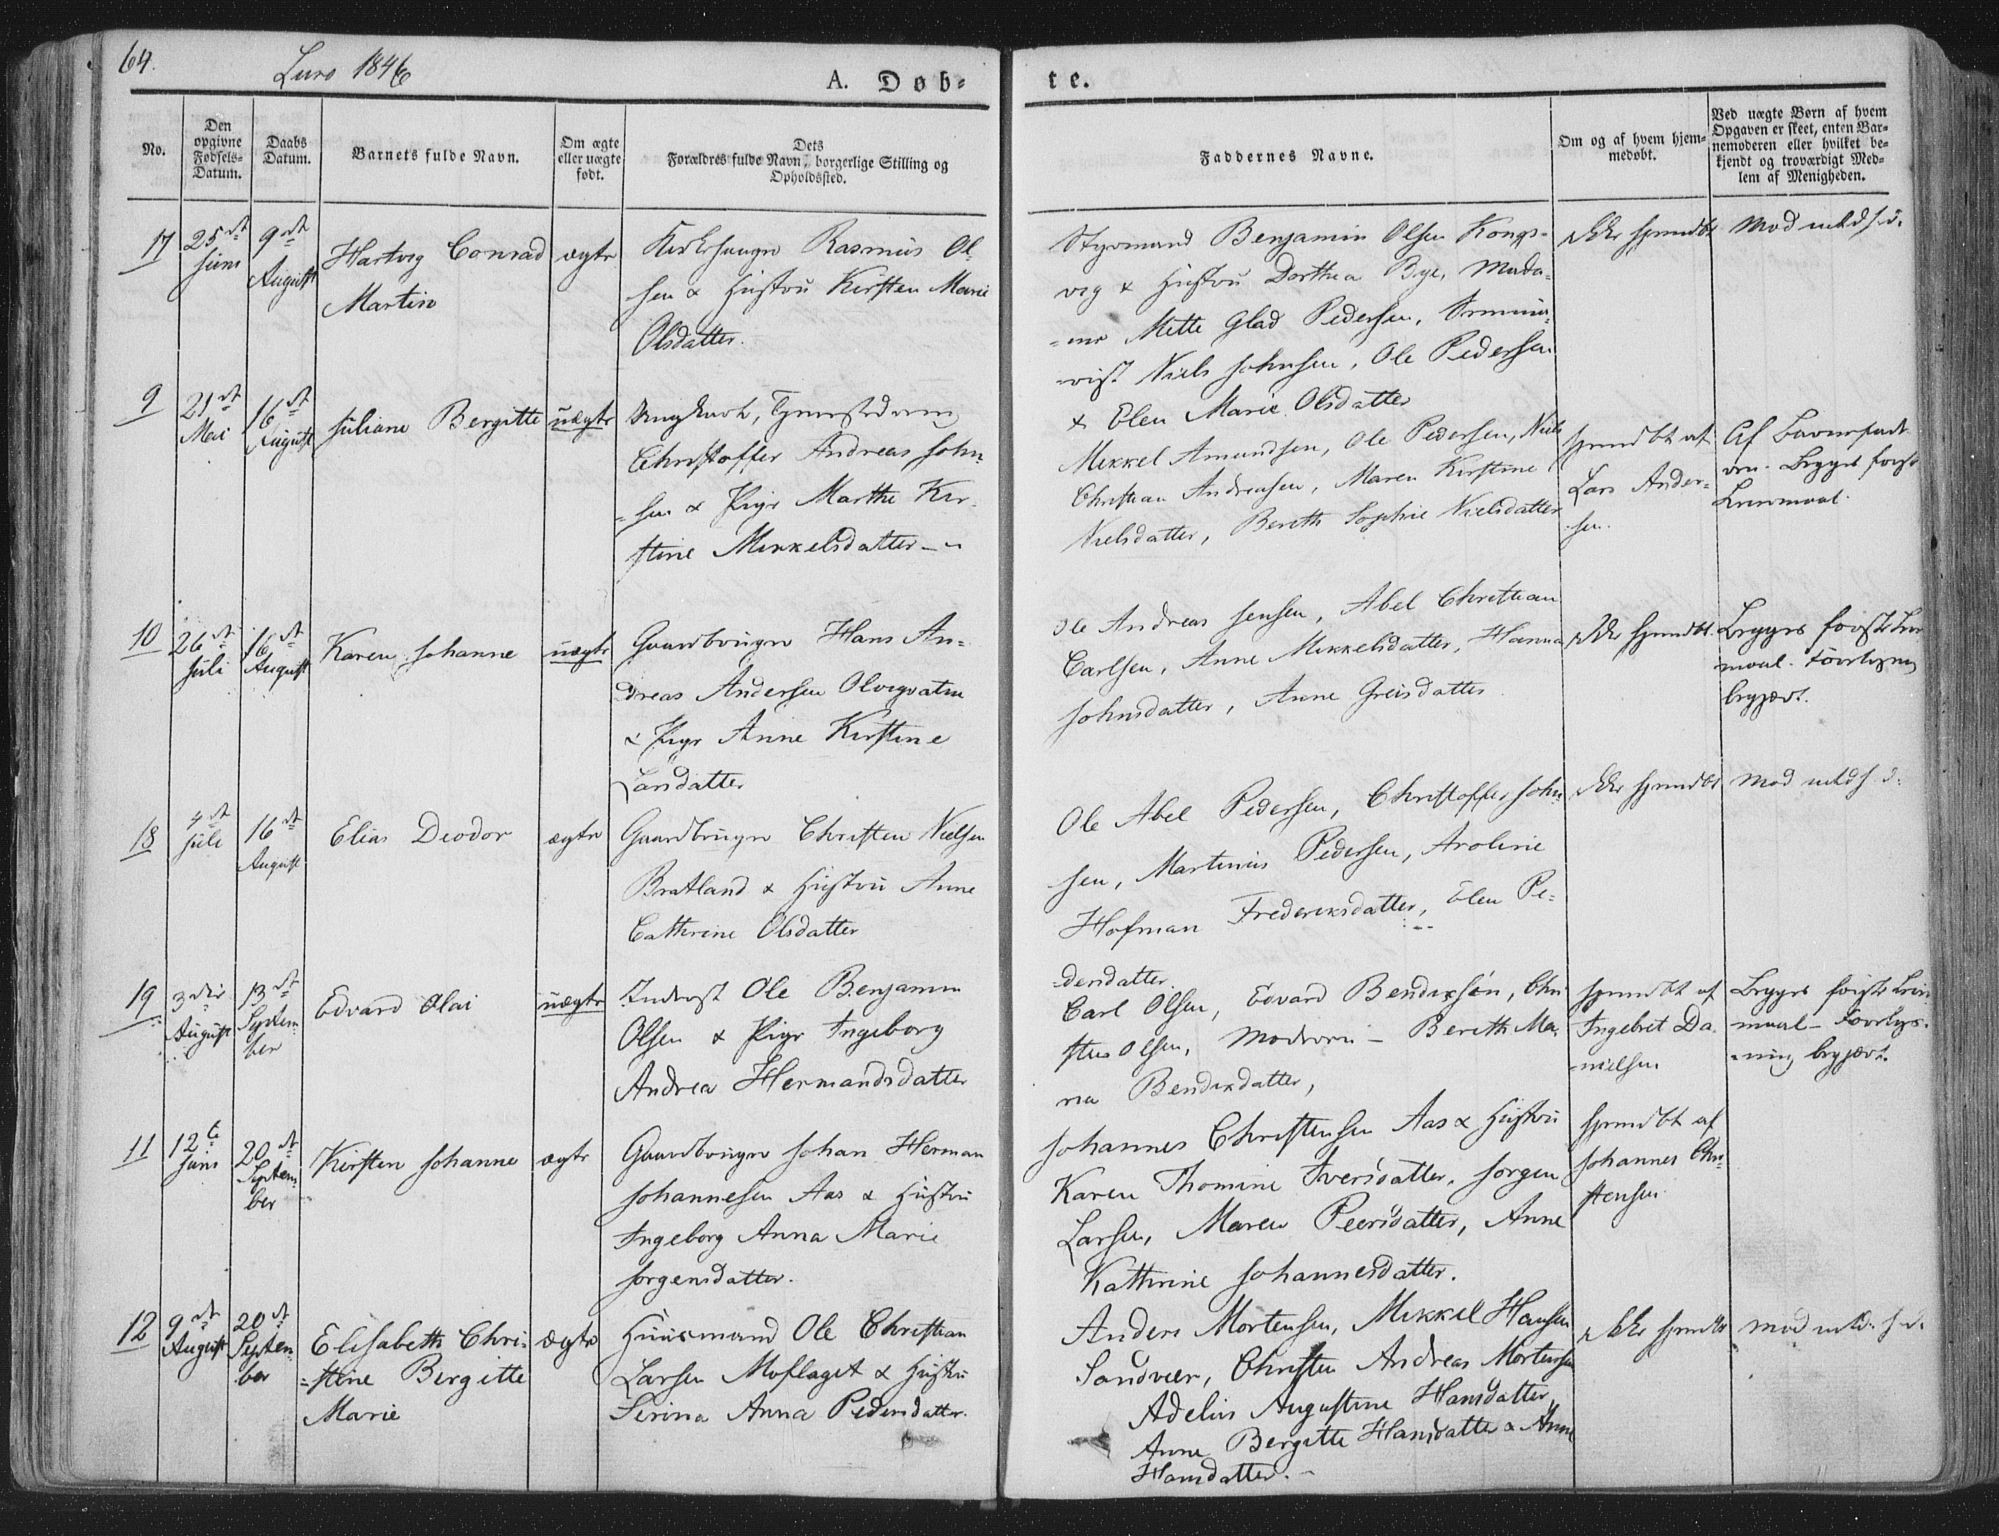 64.
Lurø 1846
A. Døb-
te.
No.
Den opgivne Fødsels-Datum.
Daabs Datum.
Barnets fulde Navn.
Om ægte eller uægte født.
Dets Forældres fulde Navn, borgerlige Stilling og Opholdssted.
Faddernes Navne.
Om og af hvem hjem-
medøbt.
Ved uægte Børn af hvem
Opgaven er skeet, enten Bar-
nemoderen eller hvilket be-
kjendt og troværdigt Med-
lem af Menigheden.
17
25de Juni
9de August
Hartvig Conrad
Martin
ægte
Kirkesanger Rasmus Ol-
sen & Hustru Kirsten Marie
Olsdatter.
Styrmand Benjamin Olsen Kongs-
vig & Hustru Dorthea Bye, Mada-
me Mette Glad Pedersen, Semina-
rist Niels Johnsen, Ole Pedersen
& Elen Marie Olsdatter
9
21de Mai
16de August
Juliane Bergitte
uægte
Ungkarl,
Christoffer Andreas John-
sen & Pige Marthe Kir-
stine Mikkelsdatter
Mikkel Amundsen, Ole Pedersen, Niels
Christian Andreasen, Maren Kirstine
Nielsdatter, Bereth Sophie Nielsdatter
hjemdøbt af
Lars Ander-
sen.
Af Barnefad-
eren. Begges første
Leiermaal.
10
26de Juli
16de August
Karen Johanne
uægte
Gaardbruger Hans An-
dreas Andersen
& Pige Anne Kirstine
Larsdatter
Ole Andreas Jensen, Abel Christian
Carlsen, Anne Mikkelsdatter, Hanna
Johnsdatter, Anne Greisdatter
Ikke hjemdøbt.
Begges første Leier-
maal.
begjært.
18
4de Juli
16de August
Elias Deodor
ægte
Gaardbruger Christen Nielsen
Bratland & Hustru Anne
Cathrine Olsdatter
Ole Abel Pedersen, Christoffer John-
sen, Martinus Pedersen, Aroline
Hofman Frederiksdatter, Elen Pe-
dersdatter.
Ikke hjemdøbt
19
3die August
13de Septem-
ber
Edvard Olai
uægte
Inderst Ole Benjamin
Olsen & Pige Ingeborg
Andrea Hermandsdatter
Carl Olsen, Edvard Bendixsen, Chri-
sten Olsen, Moderen - Bereth Ma-
ria Bendixdatter,
hjemdøbt af
Ingebret Da-
nielsen
Begges første Leier-
maal -
begjært.
11
12te Juni
20de Septem-
ber
Kirsten Johanne
ægte
Gaardbruger Johan Herman
Johannesen Aas & Hustru
Ingeborg Anna Marie
Jørgensdatter.
Johannes Christensen Aas & Hustru
Karen Thomine Iversdatter, Jørgen
Larsen, Maren Peersdatter, Anne
Kathrine Johannesdatter.
hjemdøbt af
Johannes Chri-
stensen
12
9de August
20de Septem-
ber
Elisabeth Chri-
stine Bergitte
Marie
ægte
Huusmand Ole Christian
Larsen Moflaget & Hustru
Sirina Anna Pedersdatter.
Anders Mortensen, Mikkel Hansen
Sandvær, Christen Andreas Mortensen
Adelus Augustine Hansdatter,
Anne Bergitte Hansdatter & Anne
Hansdatter.
Ikke hjemdøbt